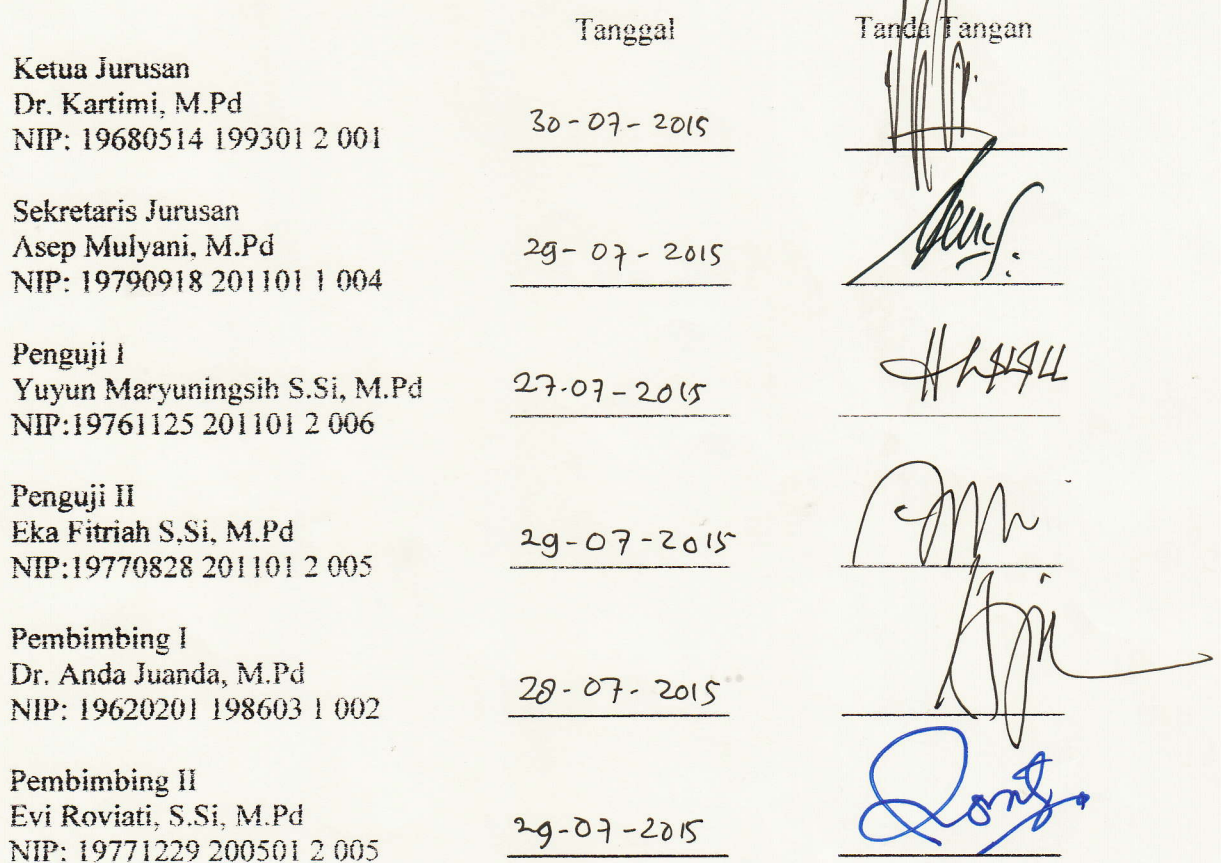 Tanggal Tanda Tangan
Ketua Jurusan
Dr. Kartimi, M.Pd
NIP: 19680514 199301 2 001
30-07-2015
Sekretaris Jurusan
Asep Mulyani, M.Pd
NIP: 19790918 201101 1 004
29-07-2015
Penguji I
Yuyun Maryuningsih S.Si, M.Pd
NIP:19761125 201101 2 006
27.07-2015
Penguji II
Eka Fitriah S.Si, M.Pd
NIP:19770828 201101 2 005
29-07-2015
Pembimbing I
Dr. Anda Juanda, M.Pd
NIP: 19620201 198603 1 002
28-07-2015
Pembimbing II
Evi Roviati, S.Si, M.Pd
NIP: 19771229 200501 2 005
29-07-2015